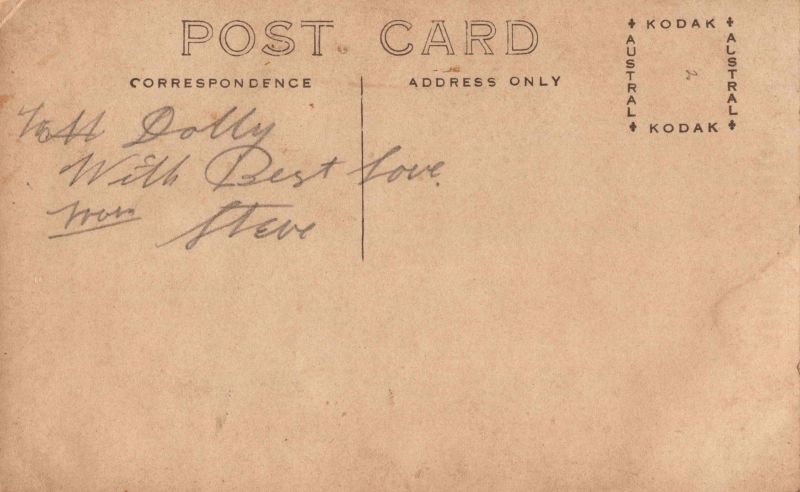 POST CARD
CORRESPONDENCE
ADDRESS ONLY
KODAK
AUSTRAL
AUSTRAL
KODAK
2
Dolly
With Best Love.
from Steve